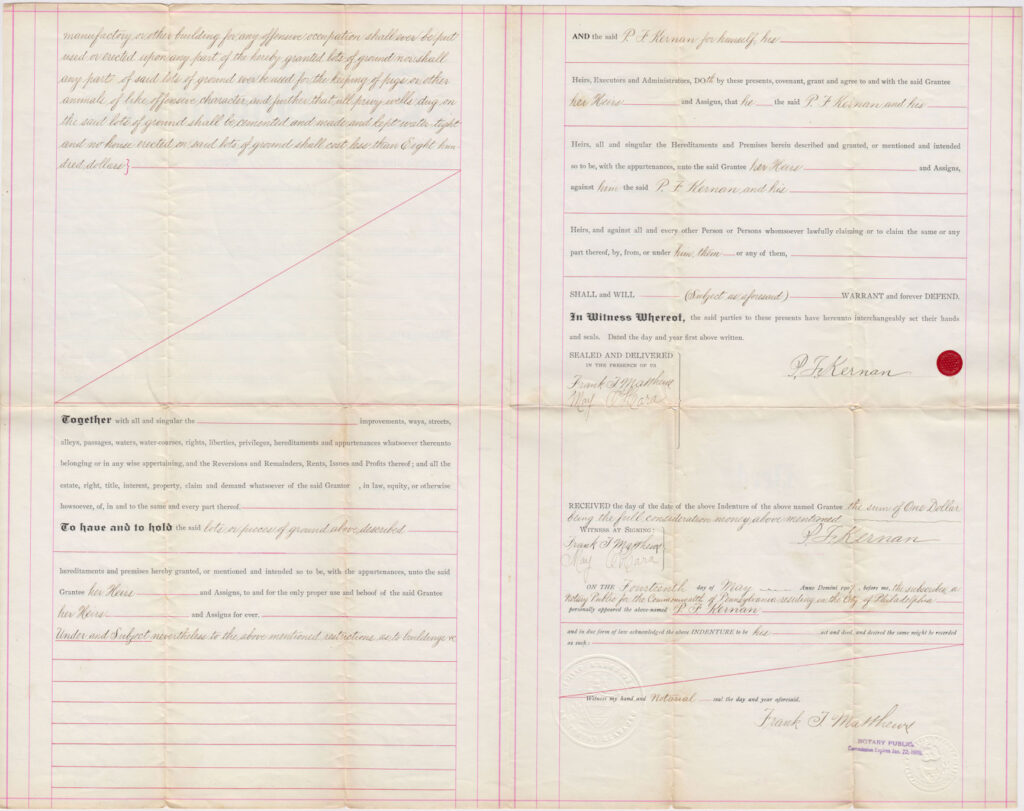 manufactory or other building for any offensive occupation shall ever be put
used or erected upon any part of the hereby granted lots of ground nor shall
any part of said lots of ground ever be used for the keeping of pigs or other
animals of like offensive character, and further that all privy wells dug on
the said lots of ground shall be cemented and made and kept water tight
and no house erected on said lots of ground shall cost less than Eight hun-
dred, dollars}
Together with all and singular the improvements, ways, streets,
alleys, passages, waters, water-courses, rights, liberties, privileges, hereditaments and appurtenances whatsoever thereunto
belonging or in any wise appertaining, and the Reversions and Remainders, Rents, Issues and Profits thereof; and all the
estate, right, title, interest, property, claim and demand whatsoever of the said Grantor , in law, equity, or otherwise
howsoever, of, in and to the same and every part thereof.
To have and to hold the said lots or pieces of ground above described
hereditaments and premises hereby granted, or mentioned and intended so to be, with the appurtenances, unto the said
Grantee her Heirs and Assigns, to and for the only proper use and behoof of the said Grantee
her Heirs and Assigns for ever.
Under and Subject nevertheless to the above mentioned restrictions as to buildings &c
AND the said P. F Kernan for himself, his
Heirs, Executors and Administrators, DOth by these presents, covenant, grant and agree to and with the said Grantee
her Heirs and Assigns, that he the said P. F Kernan and his
Heirs, all and singular the Hereditaments and Premises herein described and granted, or mentioned and intended
so to be, with the appurtenances, unto the said Grantee her Heirs and Assigns,
against him the said P. F Kernan and his
Heirs, and against all and every other Person or Persons whomsoever lawfully claiming or to claim the same or any
part thereof, by, from, or under him, them or any of them,
SHALL and WILL (Subject as aforesaid) WARRANT and forever DEFEND.
In Witness Whereof, the said parties to these presents have hereunto interchangeably set their hands
and seals. Dated the day and year first above written.
SEALED AND DELIVERED
IN THE PRESENCE OF US
P. F. Kernan
Frank T. Matthews
May O'Hara
RECEIVED the day of the date of the above Indenture of the above named Grantee the sum of One Dollar
being the full consideration money above mentioned
WITNESS AT SIGNING:
P. F. Kernan
Frank T. Matthews
May O'Hara
ON THE Fourteenth day of May Anno Domini 190 , before me, the subscriber a
Notary Public for the Commonwealth of Pennsylvania residing in the City of Philadelphia
personally appeared the above-named P. F Kernan
and in due form of law acknowledged the above INDENTURE to be his act and deed, and desired the same might be recorded
as such:
Witness my hand and Notarial seal the day and year aforesaid.
Frank T. Matthews
NOTARY PUBLIC.
Commission Expires Jan. 22,